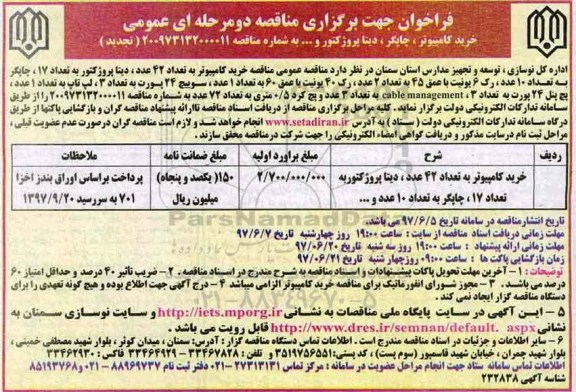 فراخوان جهت برگزاری مناقصه دومرحله ای عمومی
خرید کامپیوتر ، چاپگر ، دیتا پروژکتور و ... به شماره مناقصه ۲۰۰۹۷۳۱۳۲۰۰۰۰۱۱ ( تجدید )
اداره کل نوسازی ، توسعه و تجهیز مدارس استان سمنان در نظر دارد مناقصه عمومی مناقصه خرید کامپیوتر به تعداد ۴۲ عدد ، دیتا پروژکتور به تعداد ۱۷ ، چاپگر
به تعداد ۱۰ عدد ، رک ۶ یونیت با عمق ۴۵ به تعداد ۲ عدد ، رک ۴۰ یونیت با عمق ۶۰ به تعداد ۱ عدد ، سوییچ ۲۴ پورت به تعداد ۳ ، لپ تاپ به تعداد ۱ عدد ،
پچ پنل ۲۴ پورت به تعداد ۳ ، cable management به تعداد ۳ عدد و پچ کرد ۰/۵ متری به تعداد ۷۲ عدد به شماره مناقصه ۲۰۰۹۷۳۱۳۲۰۰۰۰۱۱ را از طریق
سامانه تدارکات الکترونیکی دولت برگزار نماید. کلیه مراحل برگزاری مناقصه از دریافت اسناد مناقصه تا ارائه پیشنهاد مناقصه گران و بازگشایی پاکتها از طریق
درگاه سامانه تدارکات الکترونیکی دولت ( ستاد ) به آدرس www.setadiran.ir انجام خواهد شد و لازم است مناقصه گران درصورت عدم عضویت قبلی ،
مراحل ثبت نام در سایت مذکور و دریافت گواهی امضاء الکترونیکی را جهت شرکت در مناقصه محقق سازند .
ردیف شرح مبلغ براورد اولیه مبلغ ضمانت نامه ملاحظات
۱ خرید کامپیوتر به تعداد ۴۲ عدد ، دیتا پروژکتوربه ۲/۷۰۰/۰۰۰/۰۰۰ ۱۵۰( یکصد و پنجاه) پرداخت براساس اوراق بندز اخزا
تعداد ۱۷ ، چاپگر به تعداد ۱۰ عدد و ... میلیون ریال ۷۰۱ به سررسید ۱۳۹۷/۹/۲۰
تاریخ انتشارمناقصه در سامانه تاریخ ۹۷/۶/۵ می باشد.
مهلت زمانی دریافت اسناد مناقصه از سایت : ساعت ۱۹:۰۰ روز چهارشنبه تاریخ ۹۷/۶/۷
مهلت زمانی ارائه پیشنهاد : ساعت ۱۹:۰۰ روز سه شنبه تاریخ ۹۷/۰۶/۲۰
زمان بازگشایی پاکت ها : ساعت ۰۹:۰۰ روز چهارشنبه تاریخ ۹۷/۰۶/۲۱
توضیحات : ۱ – آخرین مهلت تحویل پاکات پیشنهادات و اسناد مناقصه به شرح مندرج در اسناد مناقصه . ۲ – ضریب تأثیر ۴۰ درصد و حداقل امتیاز ۶۰
درصد می باشد . ۳ – مجوز شورای انفورماتیک برای مناقصه خرید کامپیوتر الزامی میباشد ۴ – درج آگهی جهت اطلاع بوده و هیچ گونه تعهدی را برای
دستگاه مناقصه گزار ایجاد نمی کند .
۵ – این آگهی در سایت پایگاه ملی مناقصات به نشانی http://iets.mporg.ir و سایت نوسازی سمنان به
نشانی http://www.dres.ir/semnan/default. aspx قابل رویت می باشد .
۶ – سایر اطلاعات و جزئیات در اسناد مناقصه مندرج است . اطلاعات تماس دستگاه مناقصه گزار : آدرس: سمنان ، میدان کوثر ، بلوار شهید مصطفی خمینی ،
بلوار شهید چمران ، خیابان شهید قاسمپور (سوم پست) ، کد پستی: ۳۵۱۹۷۵۶۵۵۱ و تلفن : ۳۳۴۶۷۸۲۸ – ۳۳۴۶۴۹۲۹ فاکس : ۳۳۴۶۲۹۳۰
اطلاعات تماس سامانه ستاد جهت انجام مراحل عضویت در سامانه : مرکز تماس ۲۷۳۱۳۱۳۱-۰۲۱ دفتر ثبت نام ۸۸۹۶۹۷۳۷ – ۰۲۱ و ۸۵۱۹۳۷۶۸
شناسه آگهی ۲۲۲۸۳۸
ParsNamadData
۰۲۱-۸۸۳۴۹۶۷۰-۵